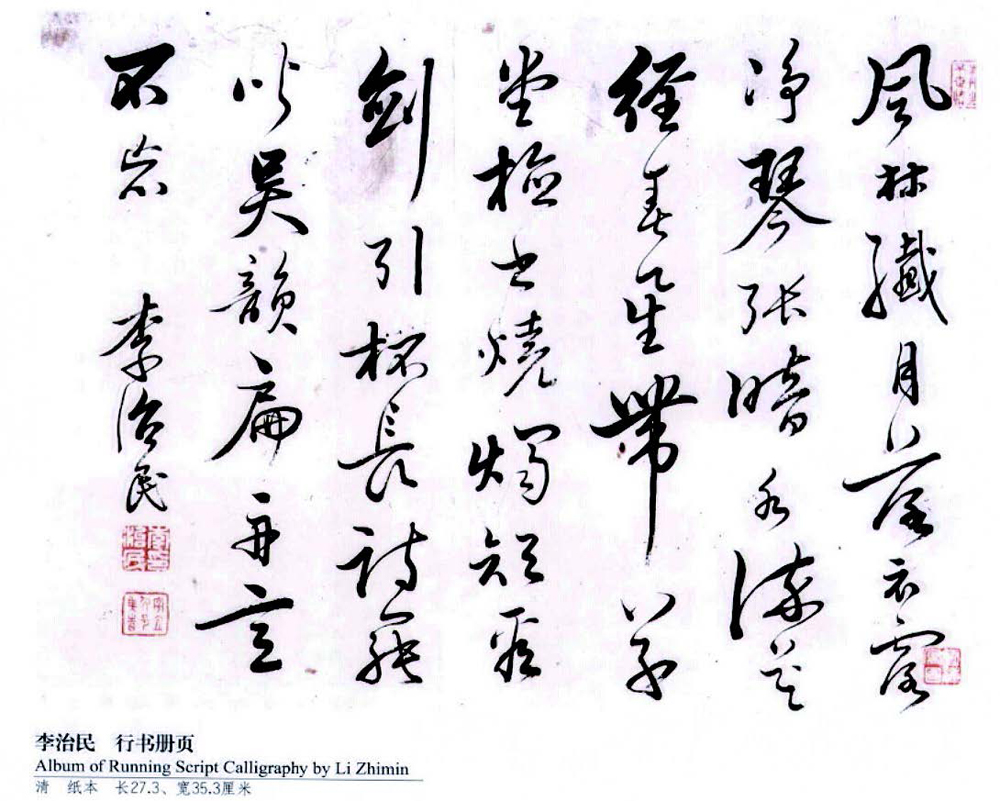 風林纖月落衣露
净琴張暗水流花
徑春星帶草
堂檢書燒燭短看
劍引杯長詩罷
听吴韻扁舟意
不忘 李治民
李治民 行书册页
Album of Running Script Calligraphy by Li Zhimin
清 纸本 长27.3、宽35.3厘米